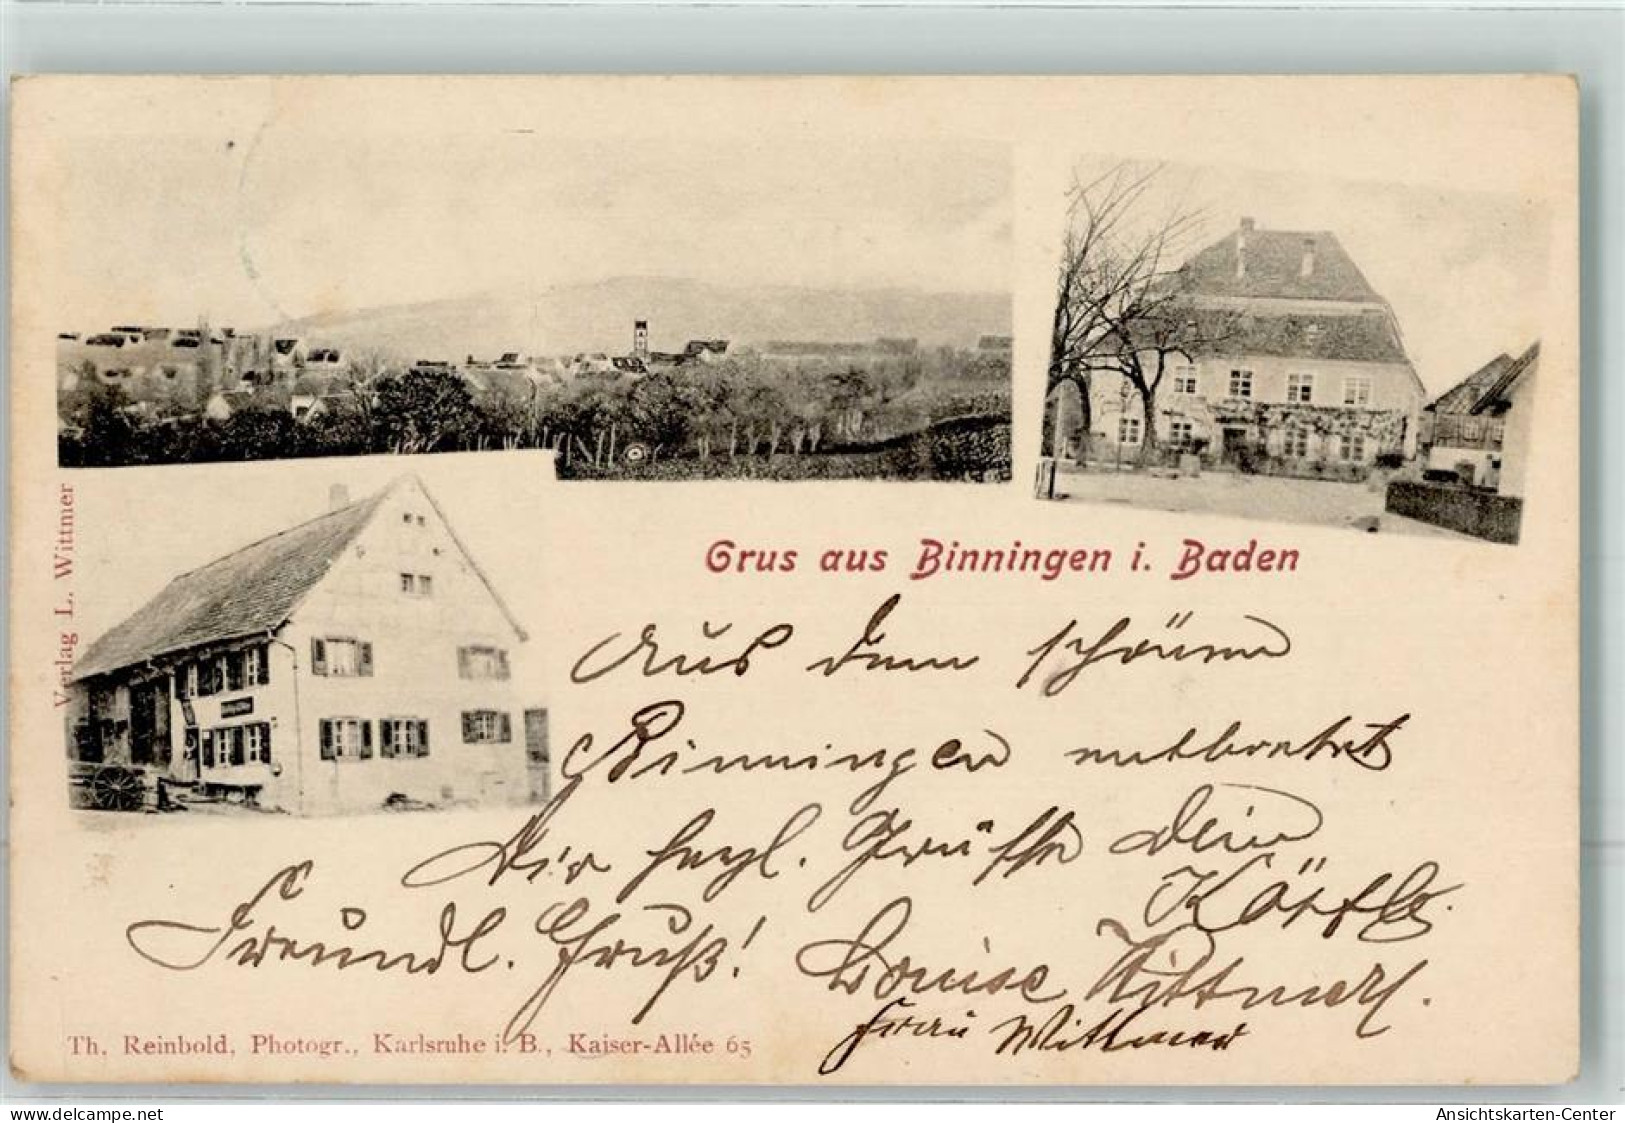 Grus aus Binningen i. Baden
Verlag L. Wittmer
Aus dem schönen
Binningen entbietet
Dir herzl. Grüsse Dein
Freundl. Gruß! Louise
Frau Wittmer
Th. Reinbold, Photogr., Karlsruhe i. B., Kaiser-Allée 65
delcampe.net
Ansichtskarten-Center